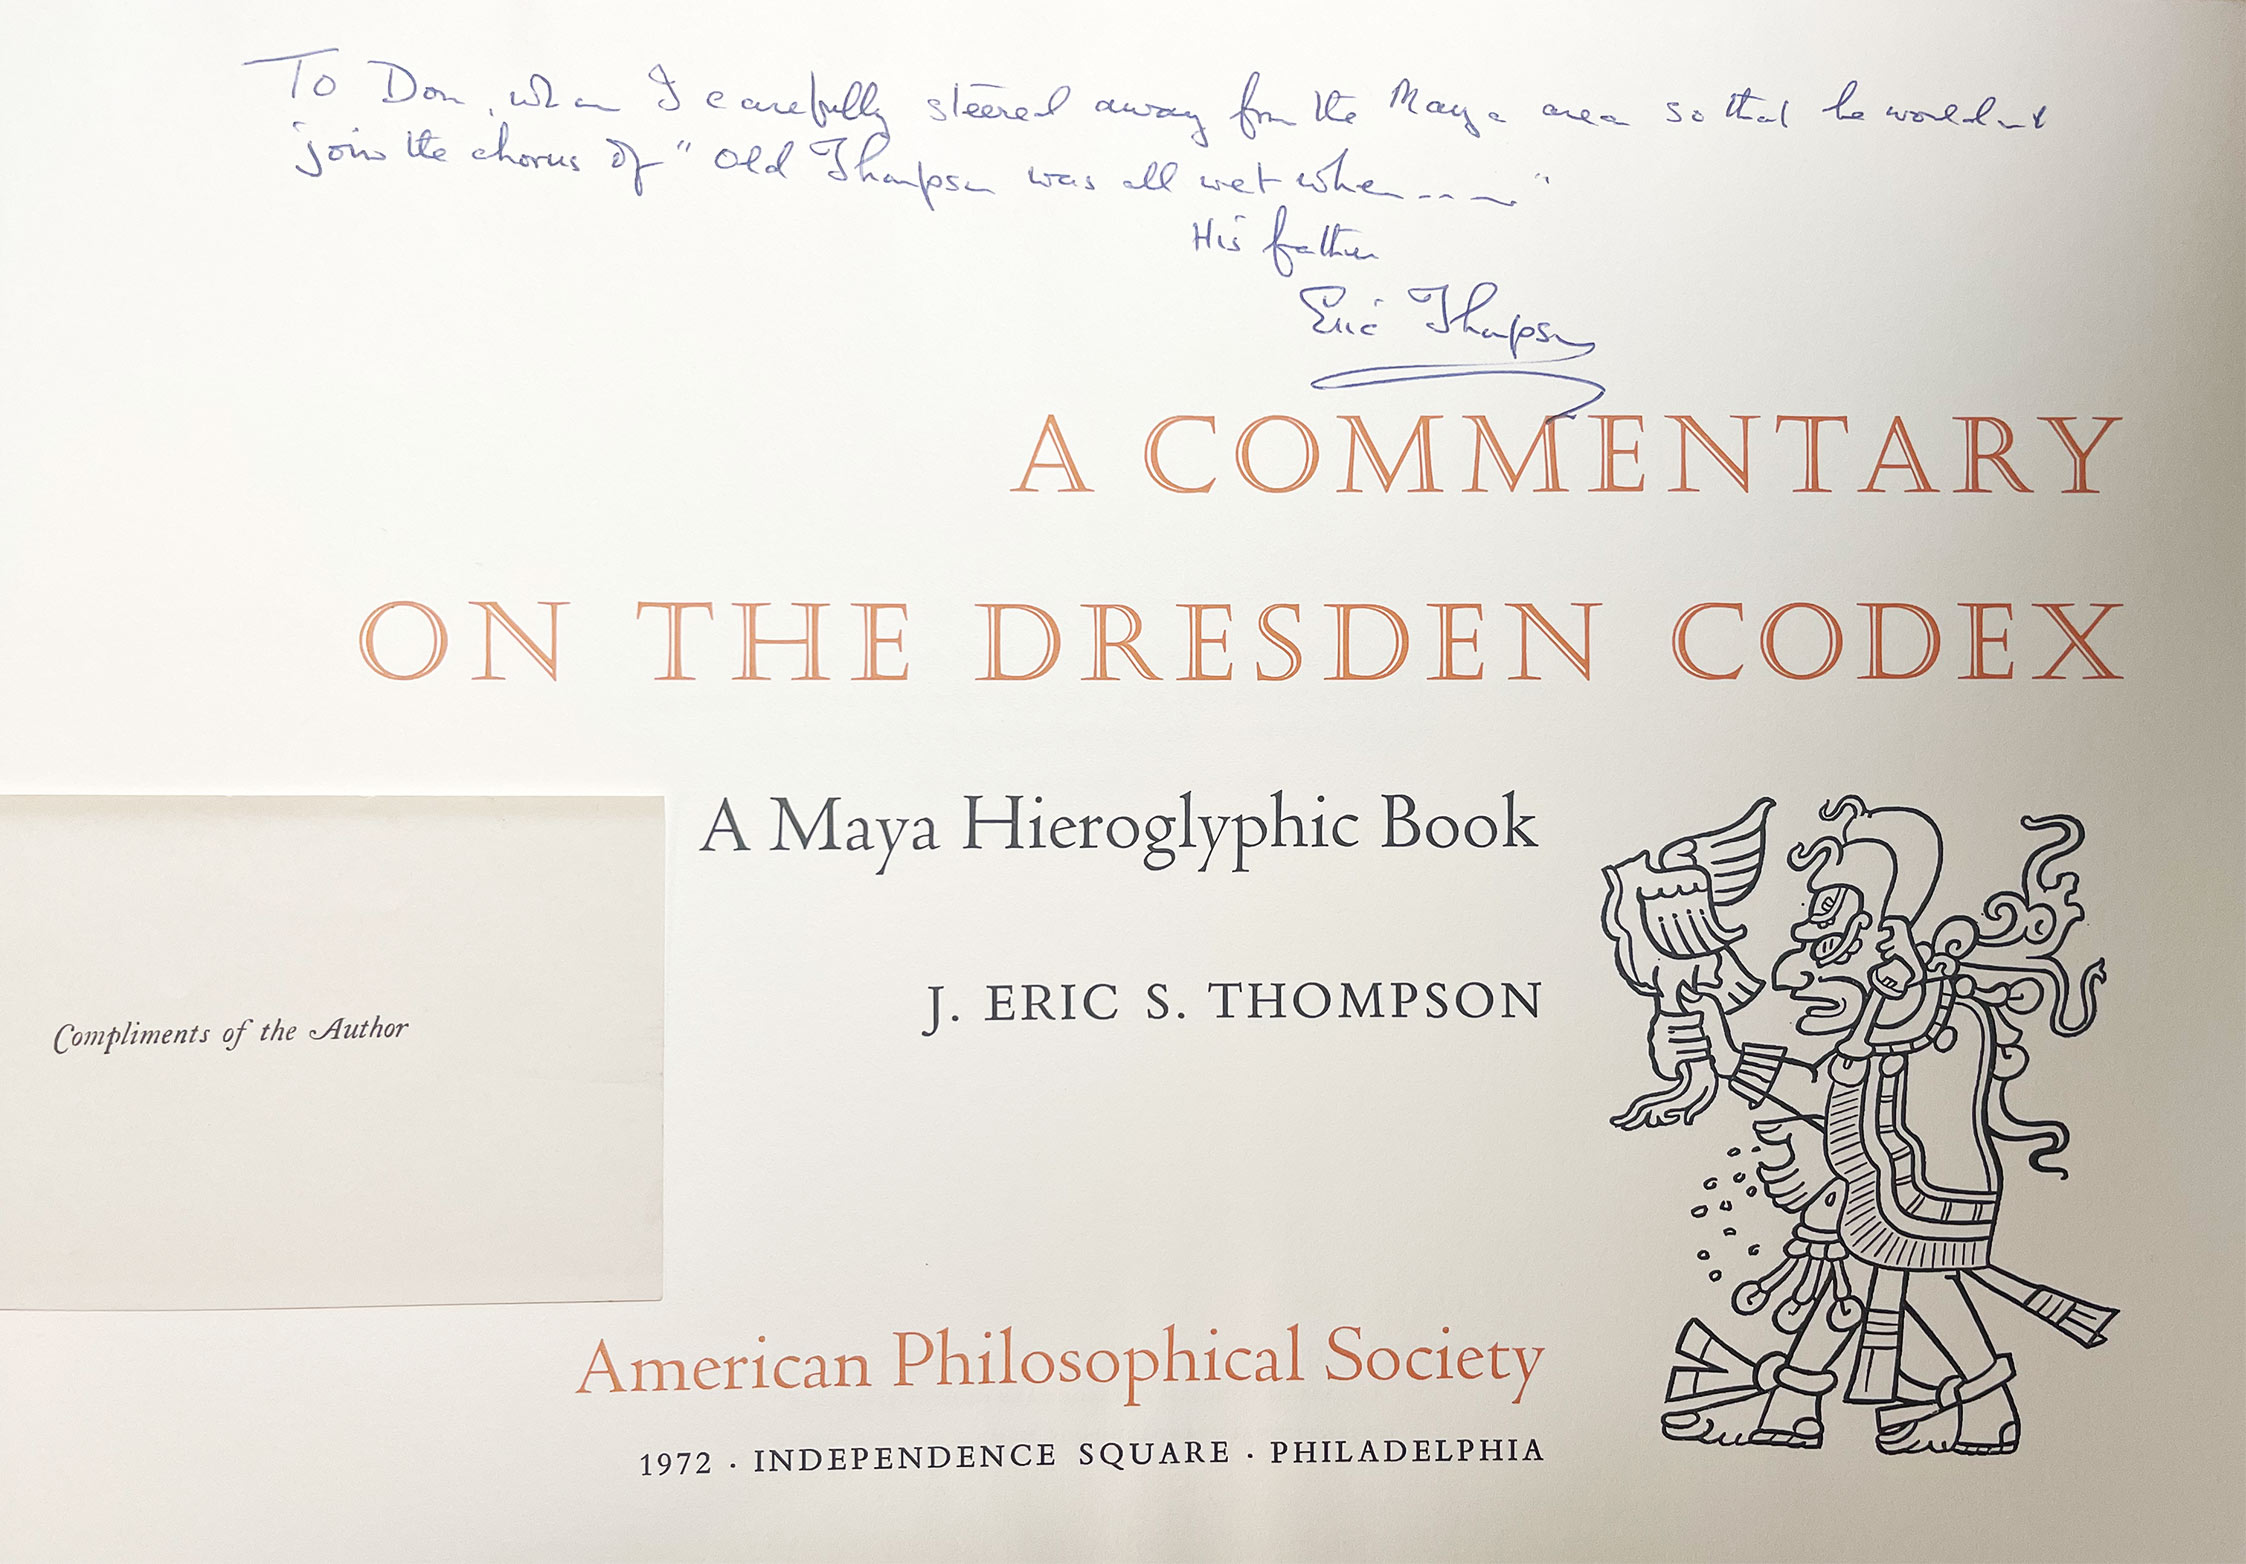 To Don, whom I carefully steered away from the Maya area so that he wouldn't
join the chorus of "Old Thompson was all wet when ----"
His father
Eric Thompson
A COMMENTARY
ON THE DRESDEN CODEX
A Maya Hieroglyphic Book
J. ERIC S. THOMPSON
Compliments of the Author
American Philosophical Society
1972 · INDEPENDENCE SQUARE · PHILADELPHIA